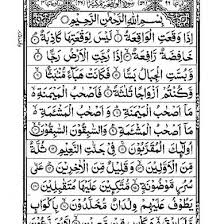 بِسْمِ اللهِ الرَّحْمٰنِ الرَّحِيْمِ
اِذَا وَقَعَتِ الْوَاقِعَةُ ۝ لَيْسَ لِوَقْعَتِهَا كَاذِبَةٌ ۝
خَافِضَةٌ رَّافِعَةٌ ۝ اِذَا رُجَّتِ الْاَرْضُ رَجًّا ۝
وَّبُسَّتِ الْجِبَالُ بَسًّا ۝ فَكَانَتْ هَبَآءً مُّنْۢبَثًّا ۝
وَّكُنْتُمْ اَزْوَاجًا ثَلٰثَةً ۝ فَاَصْحٰبُ الْمَيْمَنَةِ
مَآ اَصْحٰبُ الْمَيْمَنَةِ ۝ وَاَصْحٰبُ الْمَشْـَٔمَةِ
مَآ اَصْحٰبُ الْمَشْـَٔمَةِ ۝ وَالسّٰبِقُوْنَ السّٰبِقُوْنَ ۝
اُولٰٓئِكَ الْمُقَرَّبُوْنَ ۝ فِيْ جَنّٰتِ النَّعِيْمِ ۝ ثُلَّةٌ
مِّنَ الْاَوَّلِيْنَ ۝ وَقَلِيْلٌ مِّنَ الْاٰخِرِيْنَ ۝ عَلٰى
سُرُرٍ مَّوْضُوْنَةٍ ۝ مُّتَّكِـِٕيْنَ عَلَيْهَا مُتَقٰبِلِيْنَ ۝
يَطُوْفُ عَلَيْهِمْ وِلْدَانٌ مُّخَلَّدُوْنَ ۝ بِاَكْوَابٍ